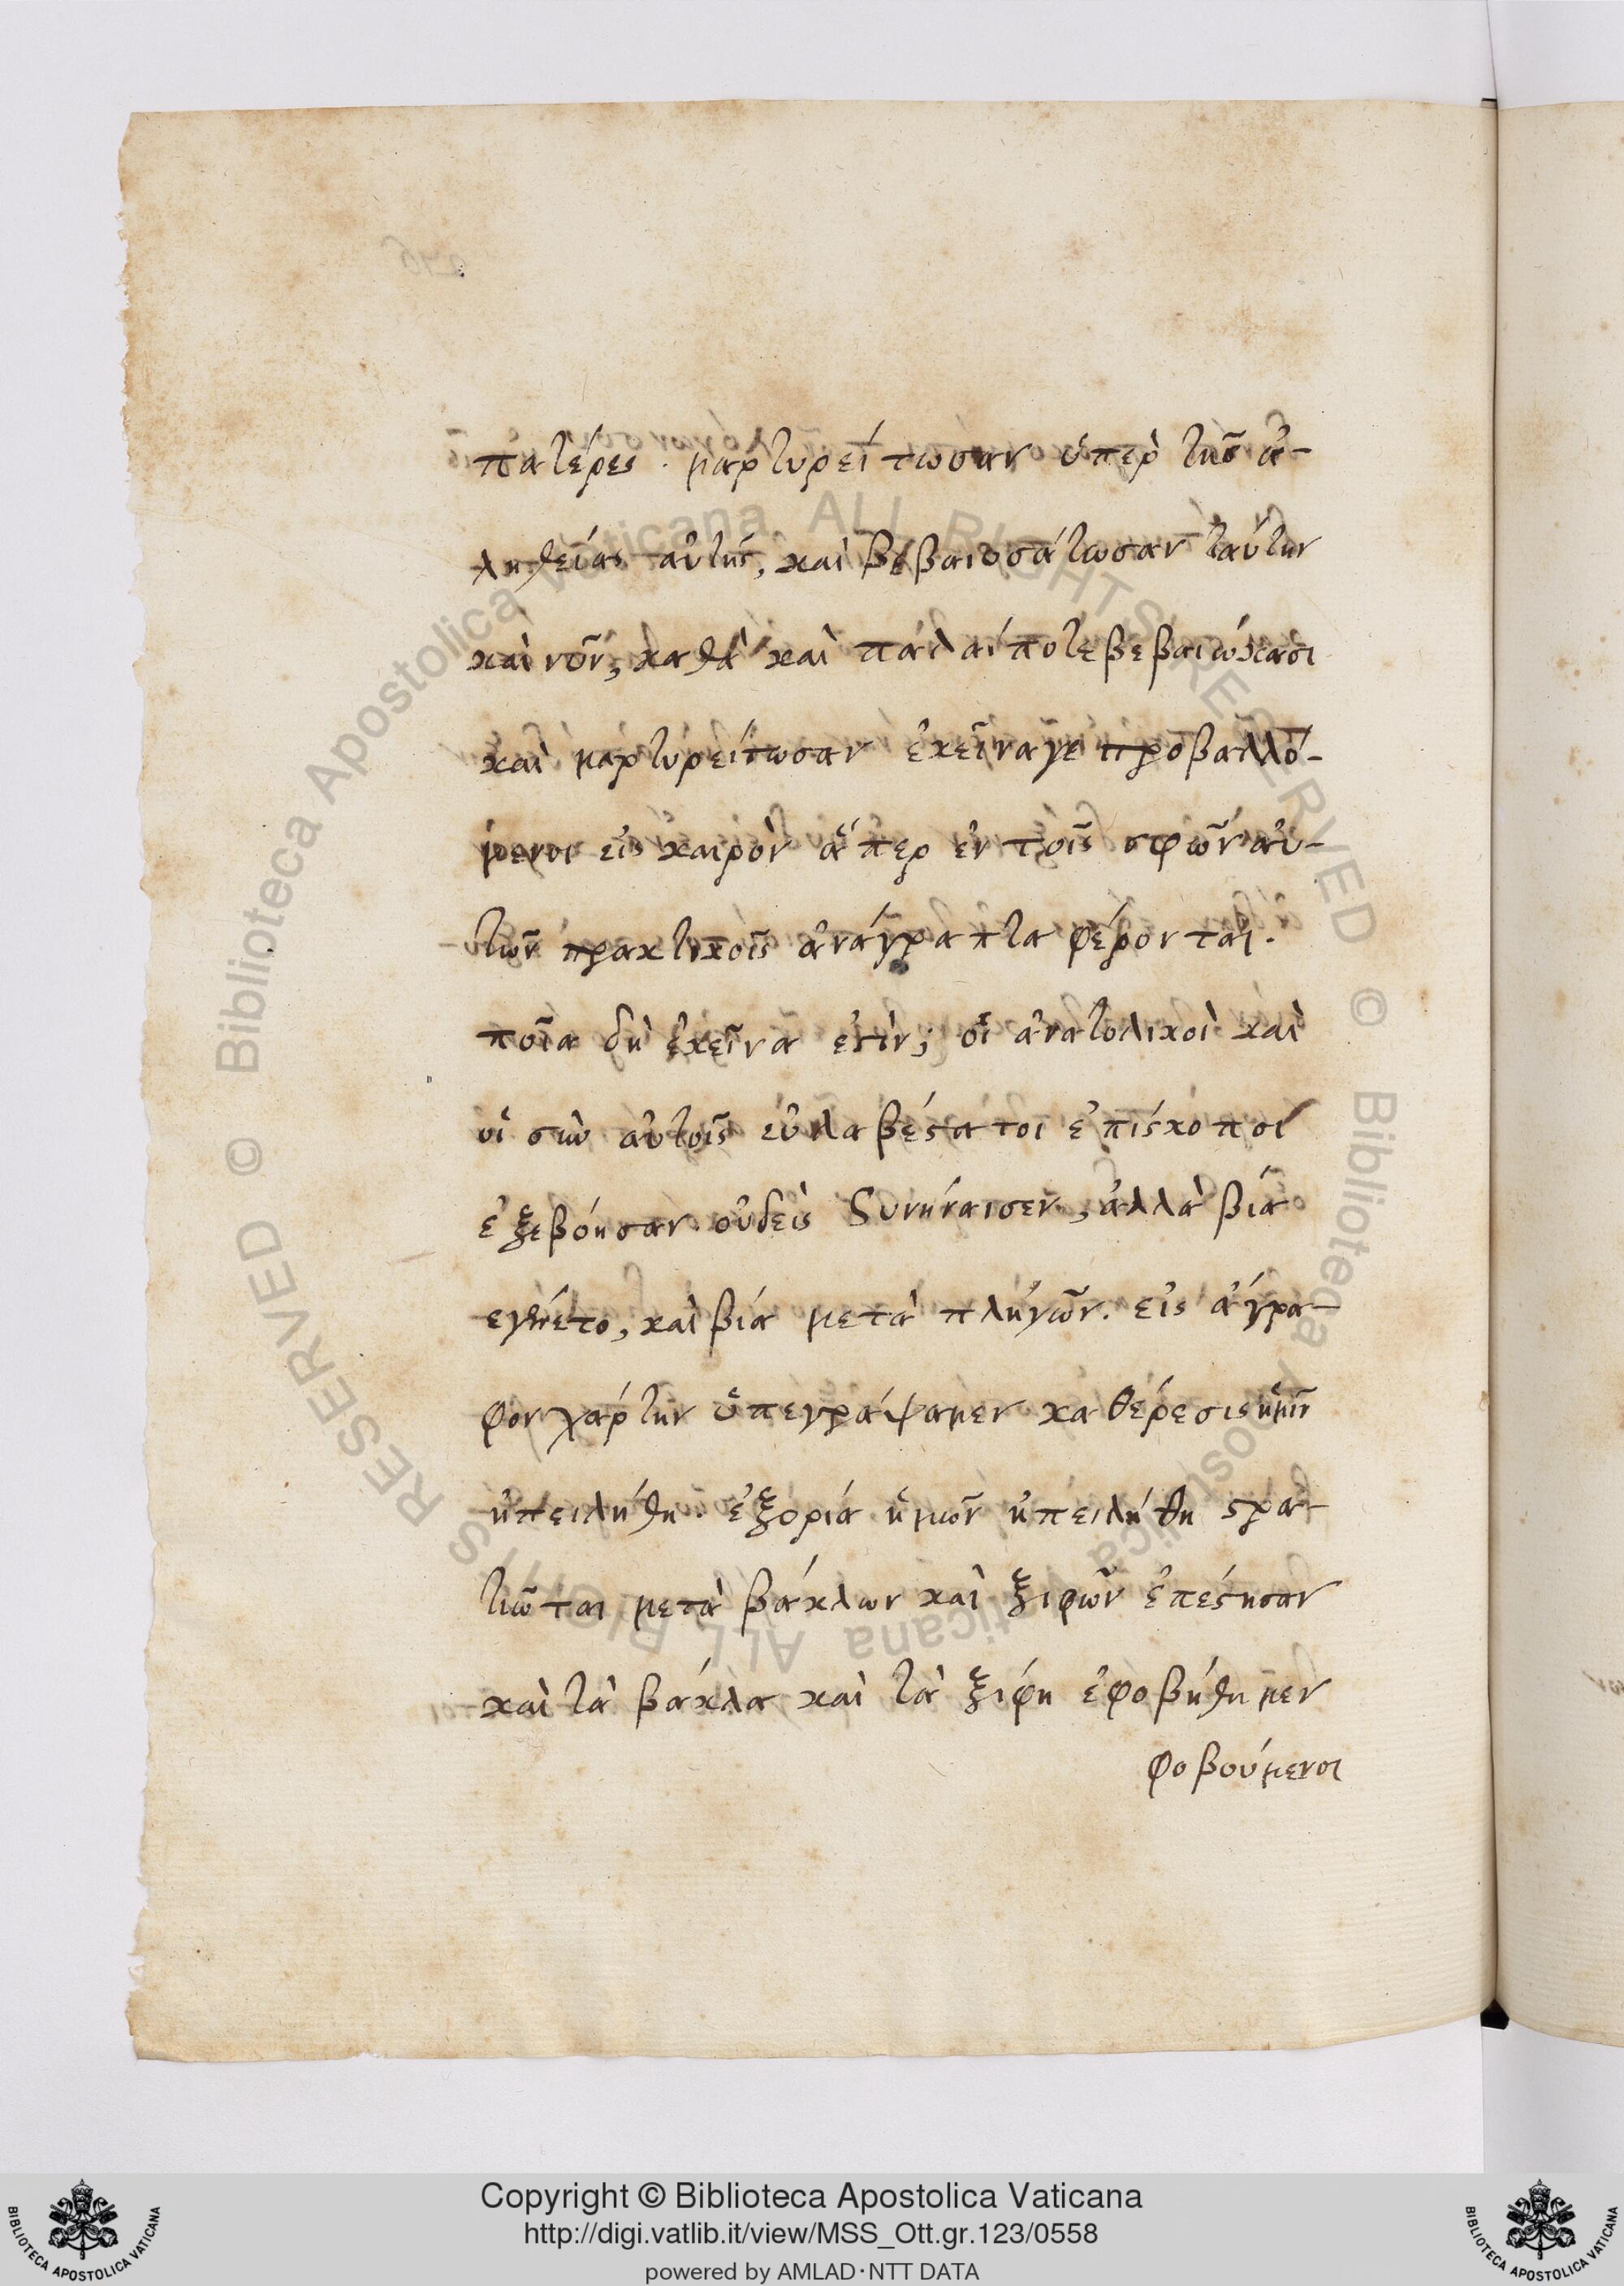 πατέρες · μαρτυρείτωσαν ὑπὲρ τῆς ἀ-
ληθείας αὐτῆς, καὶ βεβαιοσάτωσαν ταύτην
καὶ νῦν, καθὰ καὶ πάλαί ποτε βεβαιώκασι
καὶ μαρτυρείτωσαν ἐκεῖναγε προβαλλό-
μενοι εἰς καιρὸν ἅπερ ἐν τοῖς σφῶν αὐ-
τῶν πρακτικοῖς ἀνάγραπτα φέρονται.
ποῖα δὴ ἐκεῖνα ἐστὶν; οἱ ἀνατολικοὶ καὶ
οἱ σὺν αὐτοῖς εὐλαβέστατοι ἐπίσκοποι
ἐξεβόησαν οὐδεὶς συνήναισεν, ἀλλὰ βία
εγένετο, καὶ βία μετὰ πληγῶν. εἰς ἄγρα-
φον χάρτην ὑπεγράψαμεν καθέρεσις ἡμῖν
ἠπειλήθη· ἐξορία ἡμῶν ἠπειλήθη στρα-
τιῶται μετὰ βάκλων καὶ ξιφῶν ἐπέστησαν
καὶ τὰ βάκλα καὶ τὰ ξίφη ἐφοβήθημεν
φοβούμενοι
Copyright © Biblioteca Apostolica Vaticana
http://digi.vatlib.it/view/MSS_Ott.gr.123/0558
powered by AMLAD·NTT DATA
BIBLIOTECA APOSTOLICA VATICANA
BIBLIOTECA APOSTOLICA VATICANA
© Biblioteca Apostolica Vaticana ALL RIGHTS RESERVED
© Biblioteca Apostolica Vaticana ALL RIGHTS RESERVED